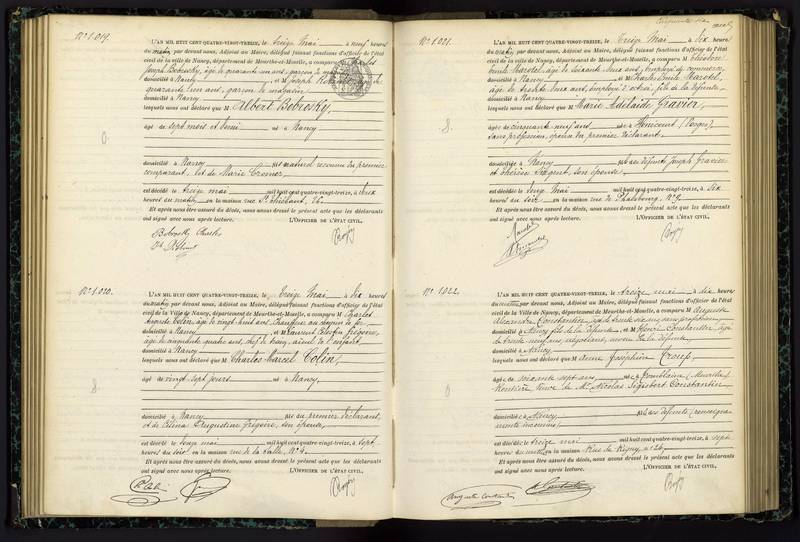 N° 1.019.
L'AN MIL HUIT CENT QUATRE-VINGT-TREIZE, le treize Mai à neuf heures
du matin par devant nous, Adjoint au Maire, délégué faisant fonctions d'officier de l'état
civil de la ville de Nancy, département de Meurthe-et-Moselle, a comparu M Charles
Joseph Bobrosky, âgé de quarante un ans, garçon de
domicilié à Nancy et M Joseph âgé de
quarante ans, garçon de magasin
domicilié à Nancy
lesquels nous ont déclaré que M Albert Bobrosky,
âgé de sept mois et demi né à Nancy
domicilié à Nancy fils naturel reconnu du premier
comparant, et de Marie Cromer
est décédé le treize mai mil huit cent quatre-vingt-treize, à deux
heures du matin en la maison rue St Thiébaut, 26.
Et après nous être assuré du décès, nous avons dressé le présent acte que les déclarants
ont signé avec nous après lecture. L'OFFICIER DE L'ÉTAT CIVIL,
Bobrosky Charles
N° 1.020.
L'AN MIL HUIT CENT QUATRE-VINGT-TREIZE, le treize Mai à dix heures
du matin par devant nous, Adjoint au Maire, délégué faisant fonctions d'officier de l'état
civil de la Ville de Nancy, département de Meurthe-et-Moselle, a comparu M Charles
Auguste Colin, âgé de vingt huit ans, chauffeur au chemin de fer,
domicilié à Nancy et M Laurent Célestin Grégoire,
âgé de cinquante quatre ans, chef de train, aïeul de l'enfant
domicilié à Nancy
lesquels nous ont déclaré que M Charles Marcel Colin,
âgé de vingt sept jours né à Nancy,
domicilié à Nancy fils du premier déclarant,
et de Célina Augustine Grégoire, son épouse,
est décédé le douze mai mil huit cent quatre-vingt-treize, à sept
heures du soir en la maison rue de la Salle, N° 4.
Et après nous être assuré du décès, nous avons dressé le présent acte que les déclarants
ont signé avec nous après lecture. L'OFFICIER DE L'ÉTAT CIVIL,
N° 1.021.
L'AN MIL HUIT CENT QUATRE-VINGT-TREIZE, le treize Mai à dix heures
du matin par devant nous, Adjoint au Maire, délégué faisant fonctions d'officier de l'état
civil de la ville de Nancy, département de Meurthe-et-Moselle, a comparu M Théodore
Emile Marotel, âgé de soixante deux ans, employé de commerce,
domicilié à Nancy et M Charles Emile Marotel,
âgé de trente deux ans, employé d'octroi, fils de la défunte,
domicilié à Nancy
lesquels nous ont déclaré que M Marie Adélaïde Gravier,
âgée de cinquante neuf ans née à (Vosges)
sans profession, épouse du premier déclarant.
domiciliée à Nancy fille des défunts Joseph Gravier
et Thérèse son épouse,
est décédée le douze Mai mil huit cent quatre-vingt-treize, à dix
heures du soir en la maison rue de Phalsbourg, N° 9.
Et après nous être assuré du décès, nous avons dressé le présent acte que les déclarants
ont signé avec nous après lecture. L'OFFICIER DE L'ÉTAT CIVIL,
N° 1.022.
L'AN MIL HUIT CENT QUATRE-VINGT-TREIZE, le treize mai à dix heures
du matin par devant nous, Adjoint au Maire, délégué faisant fonctions d'officier de l'état
civil de la Ville de Nancy, département de Meurthe-et-Moselle, a comparu M Auguste
Alexandre Constantin, âgé de trente six ans, sans profession
domicilié à Nancy fils de la défunte, et M Henri Constantin, âgé
de trente neuf ans, négociant, neveu de la défunte,
domicilié à Nancy
lesquels nous ont déclaré que Anne Joséphine Croup,
âgée de soixante sept ans née à (Meurthe)
Rentière, veuve de Mr Nicolas Sigisbert Constantin
domiciliée à Nancy fille des défunts (renseigne-
ments inconnus)
est décédée le treize mai mil huit cent quatre-vingt-treize, à sept
heures du matin en la maison Rue de Rigny, n° 26.
Et après nous être assuré du décès, nous avons dressé le présent acte que les déclarants
ont signé avec nous après lecture. L'OFFICIER DE L'ÉTAT CIVIL,
Auguste Constantin